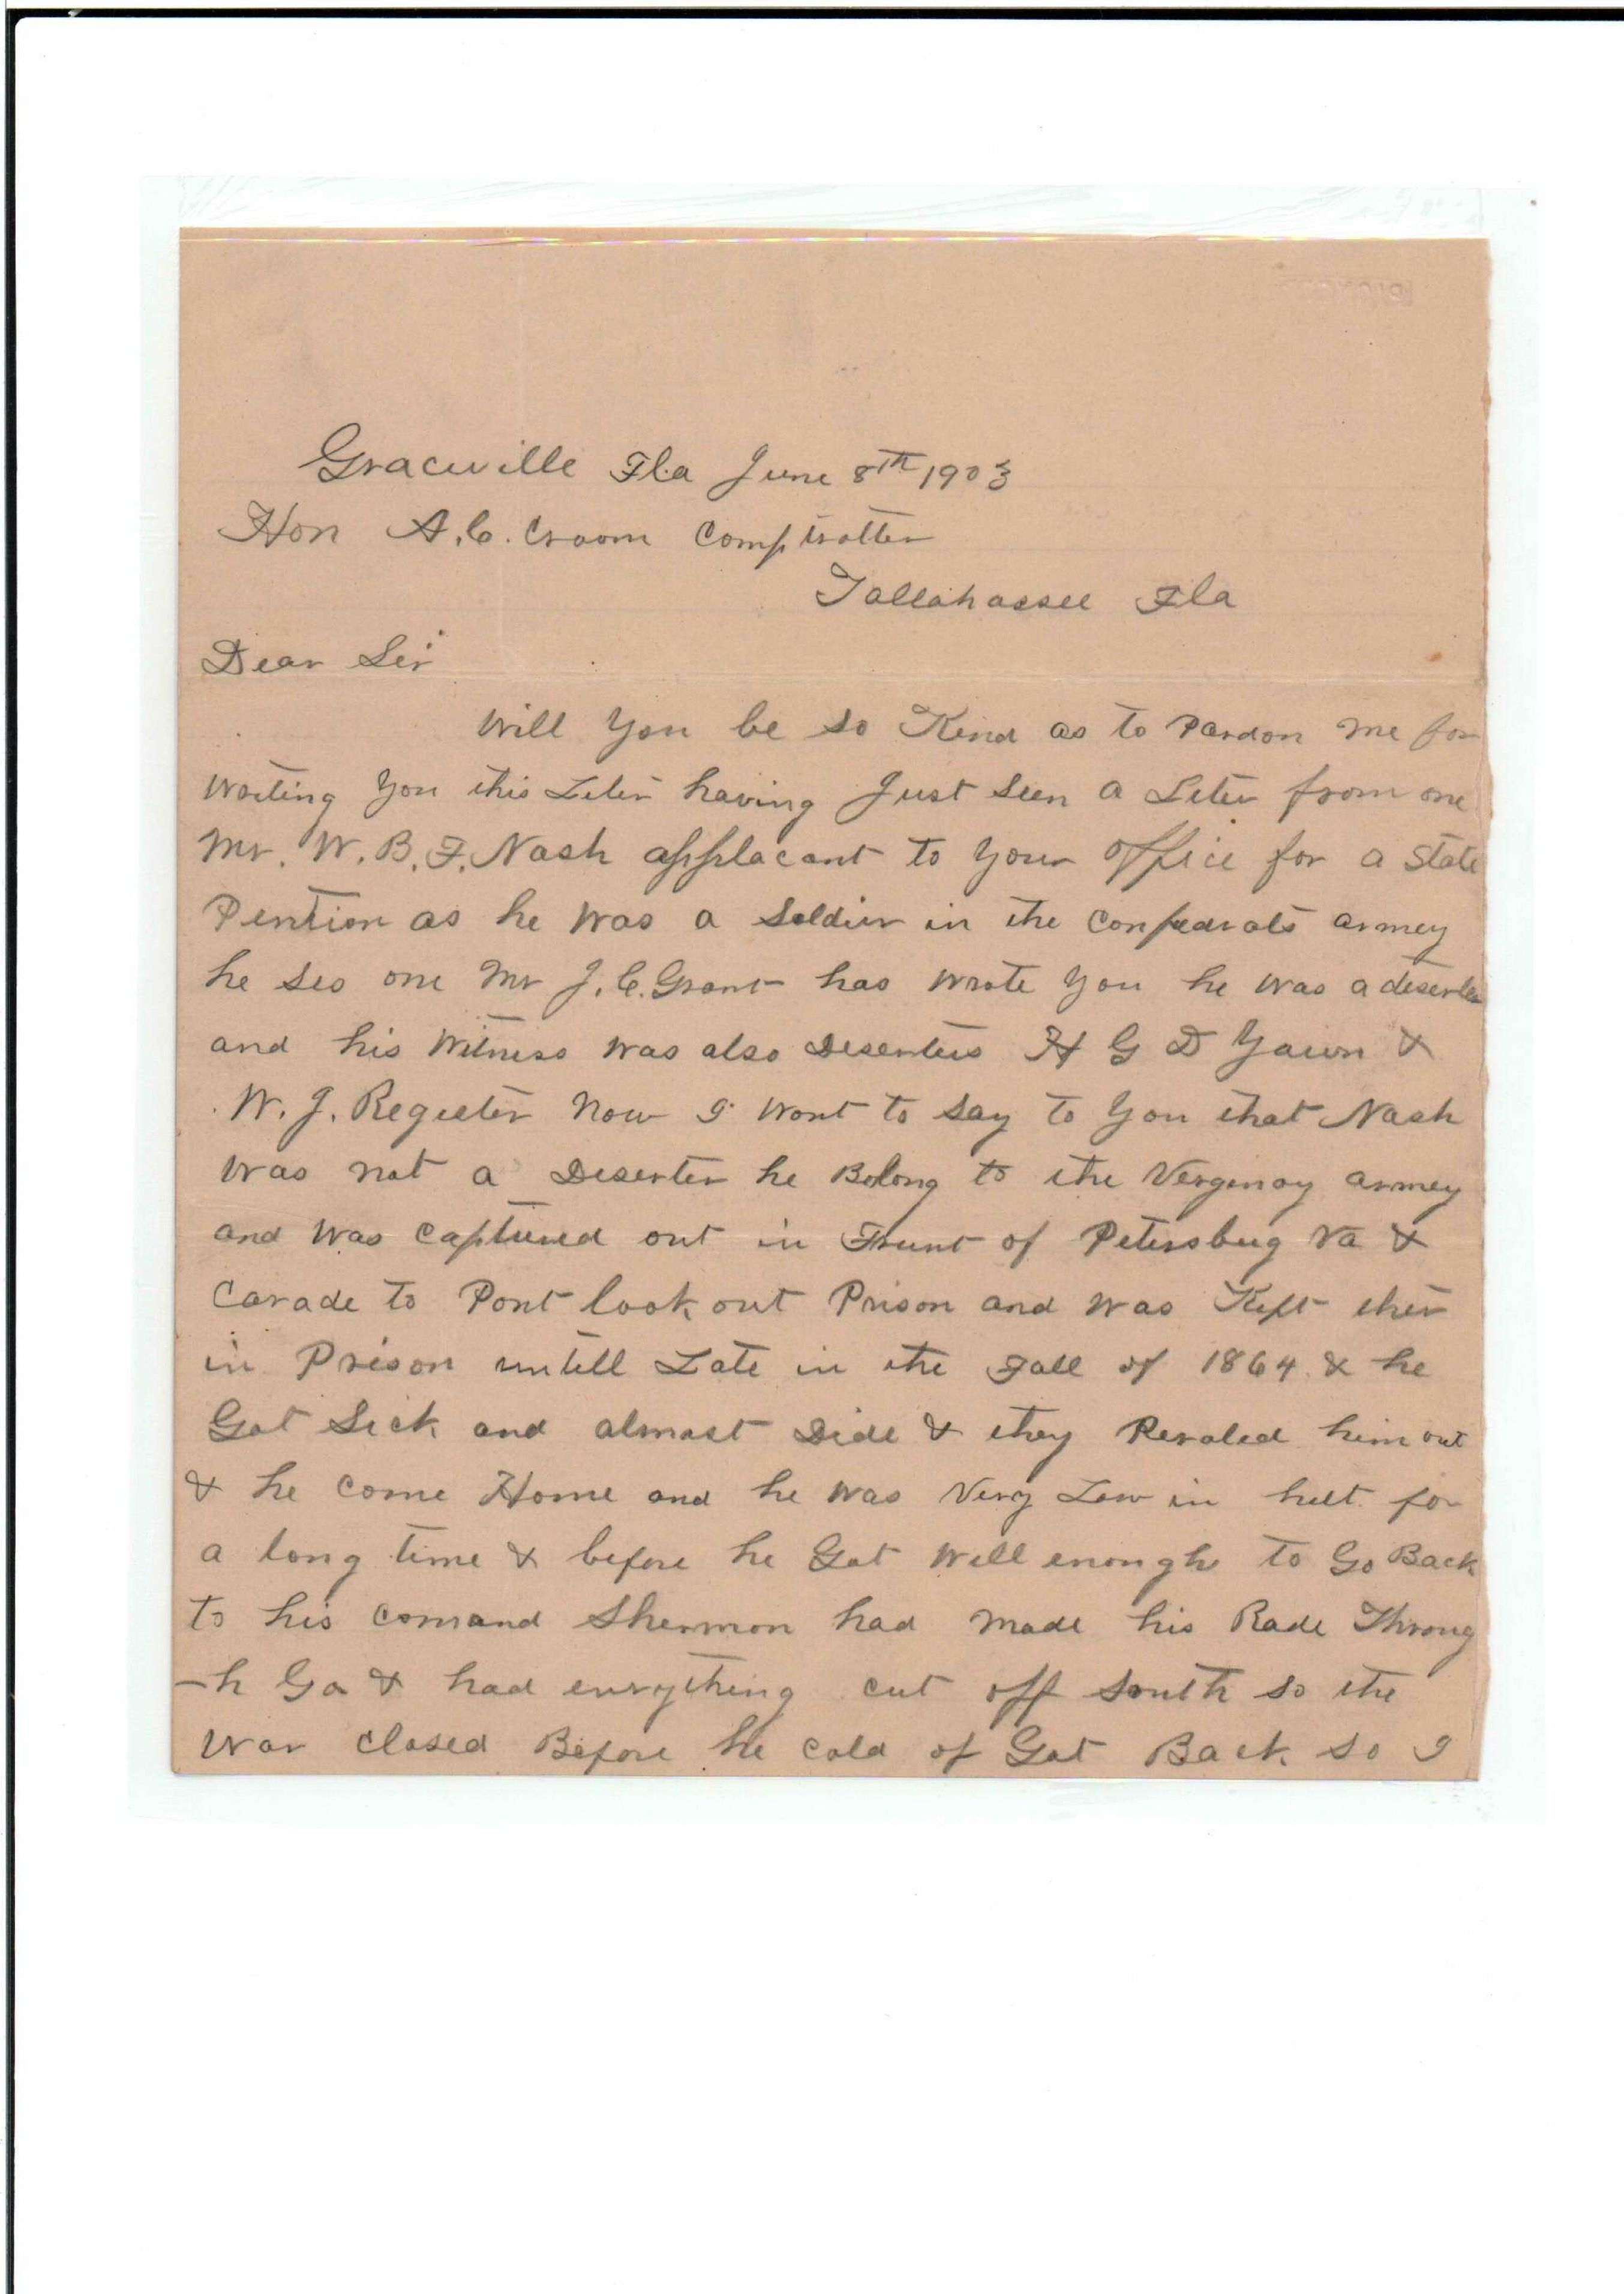 Graceville Fla June 8th 1903
Hon A.C. Croom Comptrotter
Tallahassee Fla
Dear Sir
Will You be so Kind as to Pardon me for
writing You this Leter having Just seen a Leter from one
Mr. W. B. F. Nash applacant to Your office for a State
Pention as he was a Soldier in the Confedrate armey
he ses one Mr J. C. Grant has wrote You he was a deserter
and his Witness was also Deserters H G D Yawn &
W. J. Register Now I Want to Say to You that Nash
was not a Deserter he Belong to the Vergenay armey
and was Captured out in Frunt of Petersbug Va &
Carade to Pont look out Prison and was Kept ther
in Prison untell Late in the Fall of 1864 & he
Got Sick and almost Dide & they Peroled him out
& he Come Home and he was Very Low in helt for
a long time & before he Got Well enough to Go Back
to his Comand Shermon had Made his Rade Throug
-h Ga & had everything cut off South so the
War Closed Before he cold of Got Back so I